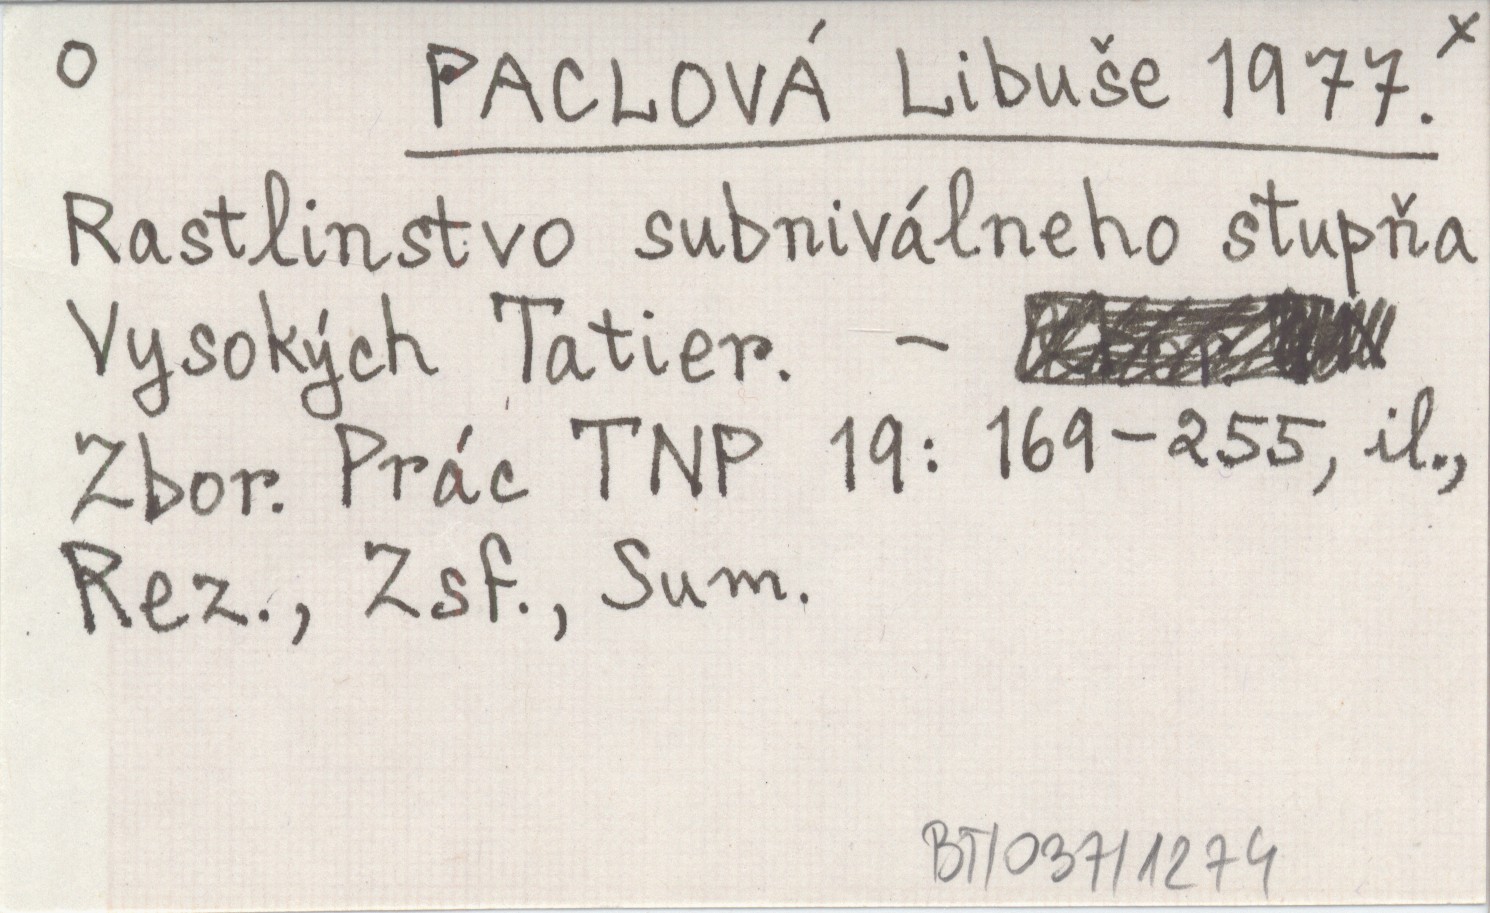 o PACLOVÁ Libuše 1977. x
Rastlinstvo subniválneho stupňa
Vysokých Tatier. –
Zbor. Prác TNP 19: 169–255, il.,
Rez., Zsf., Sum.
BT/037/1274